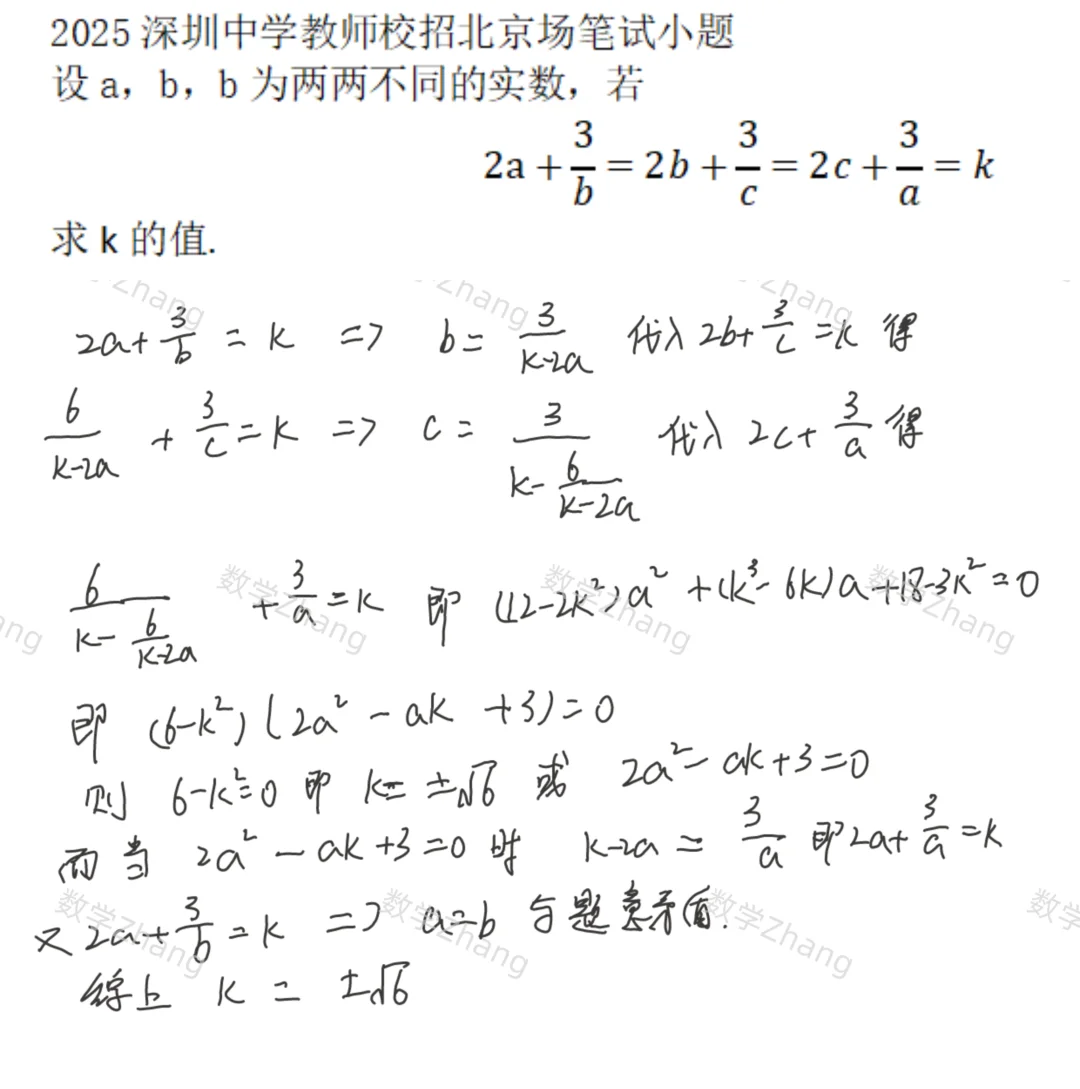 2025 深圳中学教师校招北京场笔试小题
设 a，b，b 为两两不同的实数，若
2a + 3/b = 2b + 3/c = 2c + 3/a = k
求 k 的值.
2a + 3/b = k => b = 3/(k-2a) 代入 2b + 3/c = k 得
6/(k-2a) + 3/c = k => c = 3/(k - 6/(k-2a)) 代入 2c + 3/a 得
6/(k - 6/(k-2a)) + 3/a = k 即 (12-2k²)a² + (k³-6k)a + 18-3k² = 0
即 (6-k²)(2a² - ak + 3) = 0
则 6-k²=0 即 k= ±√6 或 2a² - ak + 3 = 0
而当 2a² - ak + 3 = 0 时 k-2a = 3/a 即 2a + 3/a = k
又 2a + 3/b = k => a = b 与题意矛盾.
综上 k = ±√6
数学Zhang